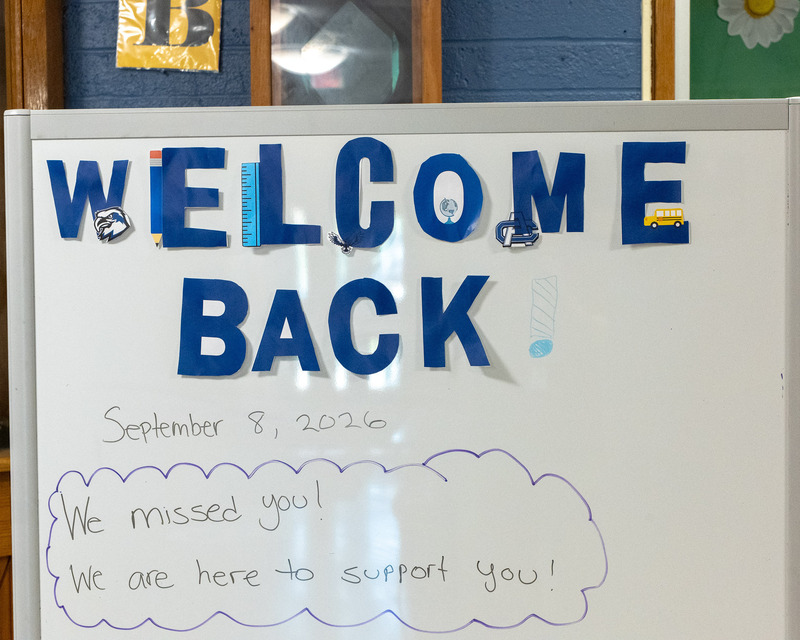 B
WELCOME
BACK!
September 8, 2026
We missed you!
We are here to support you!